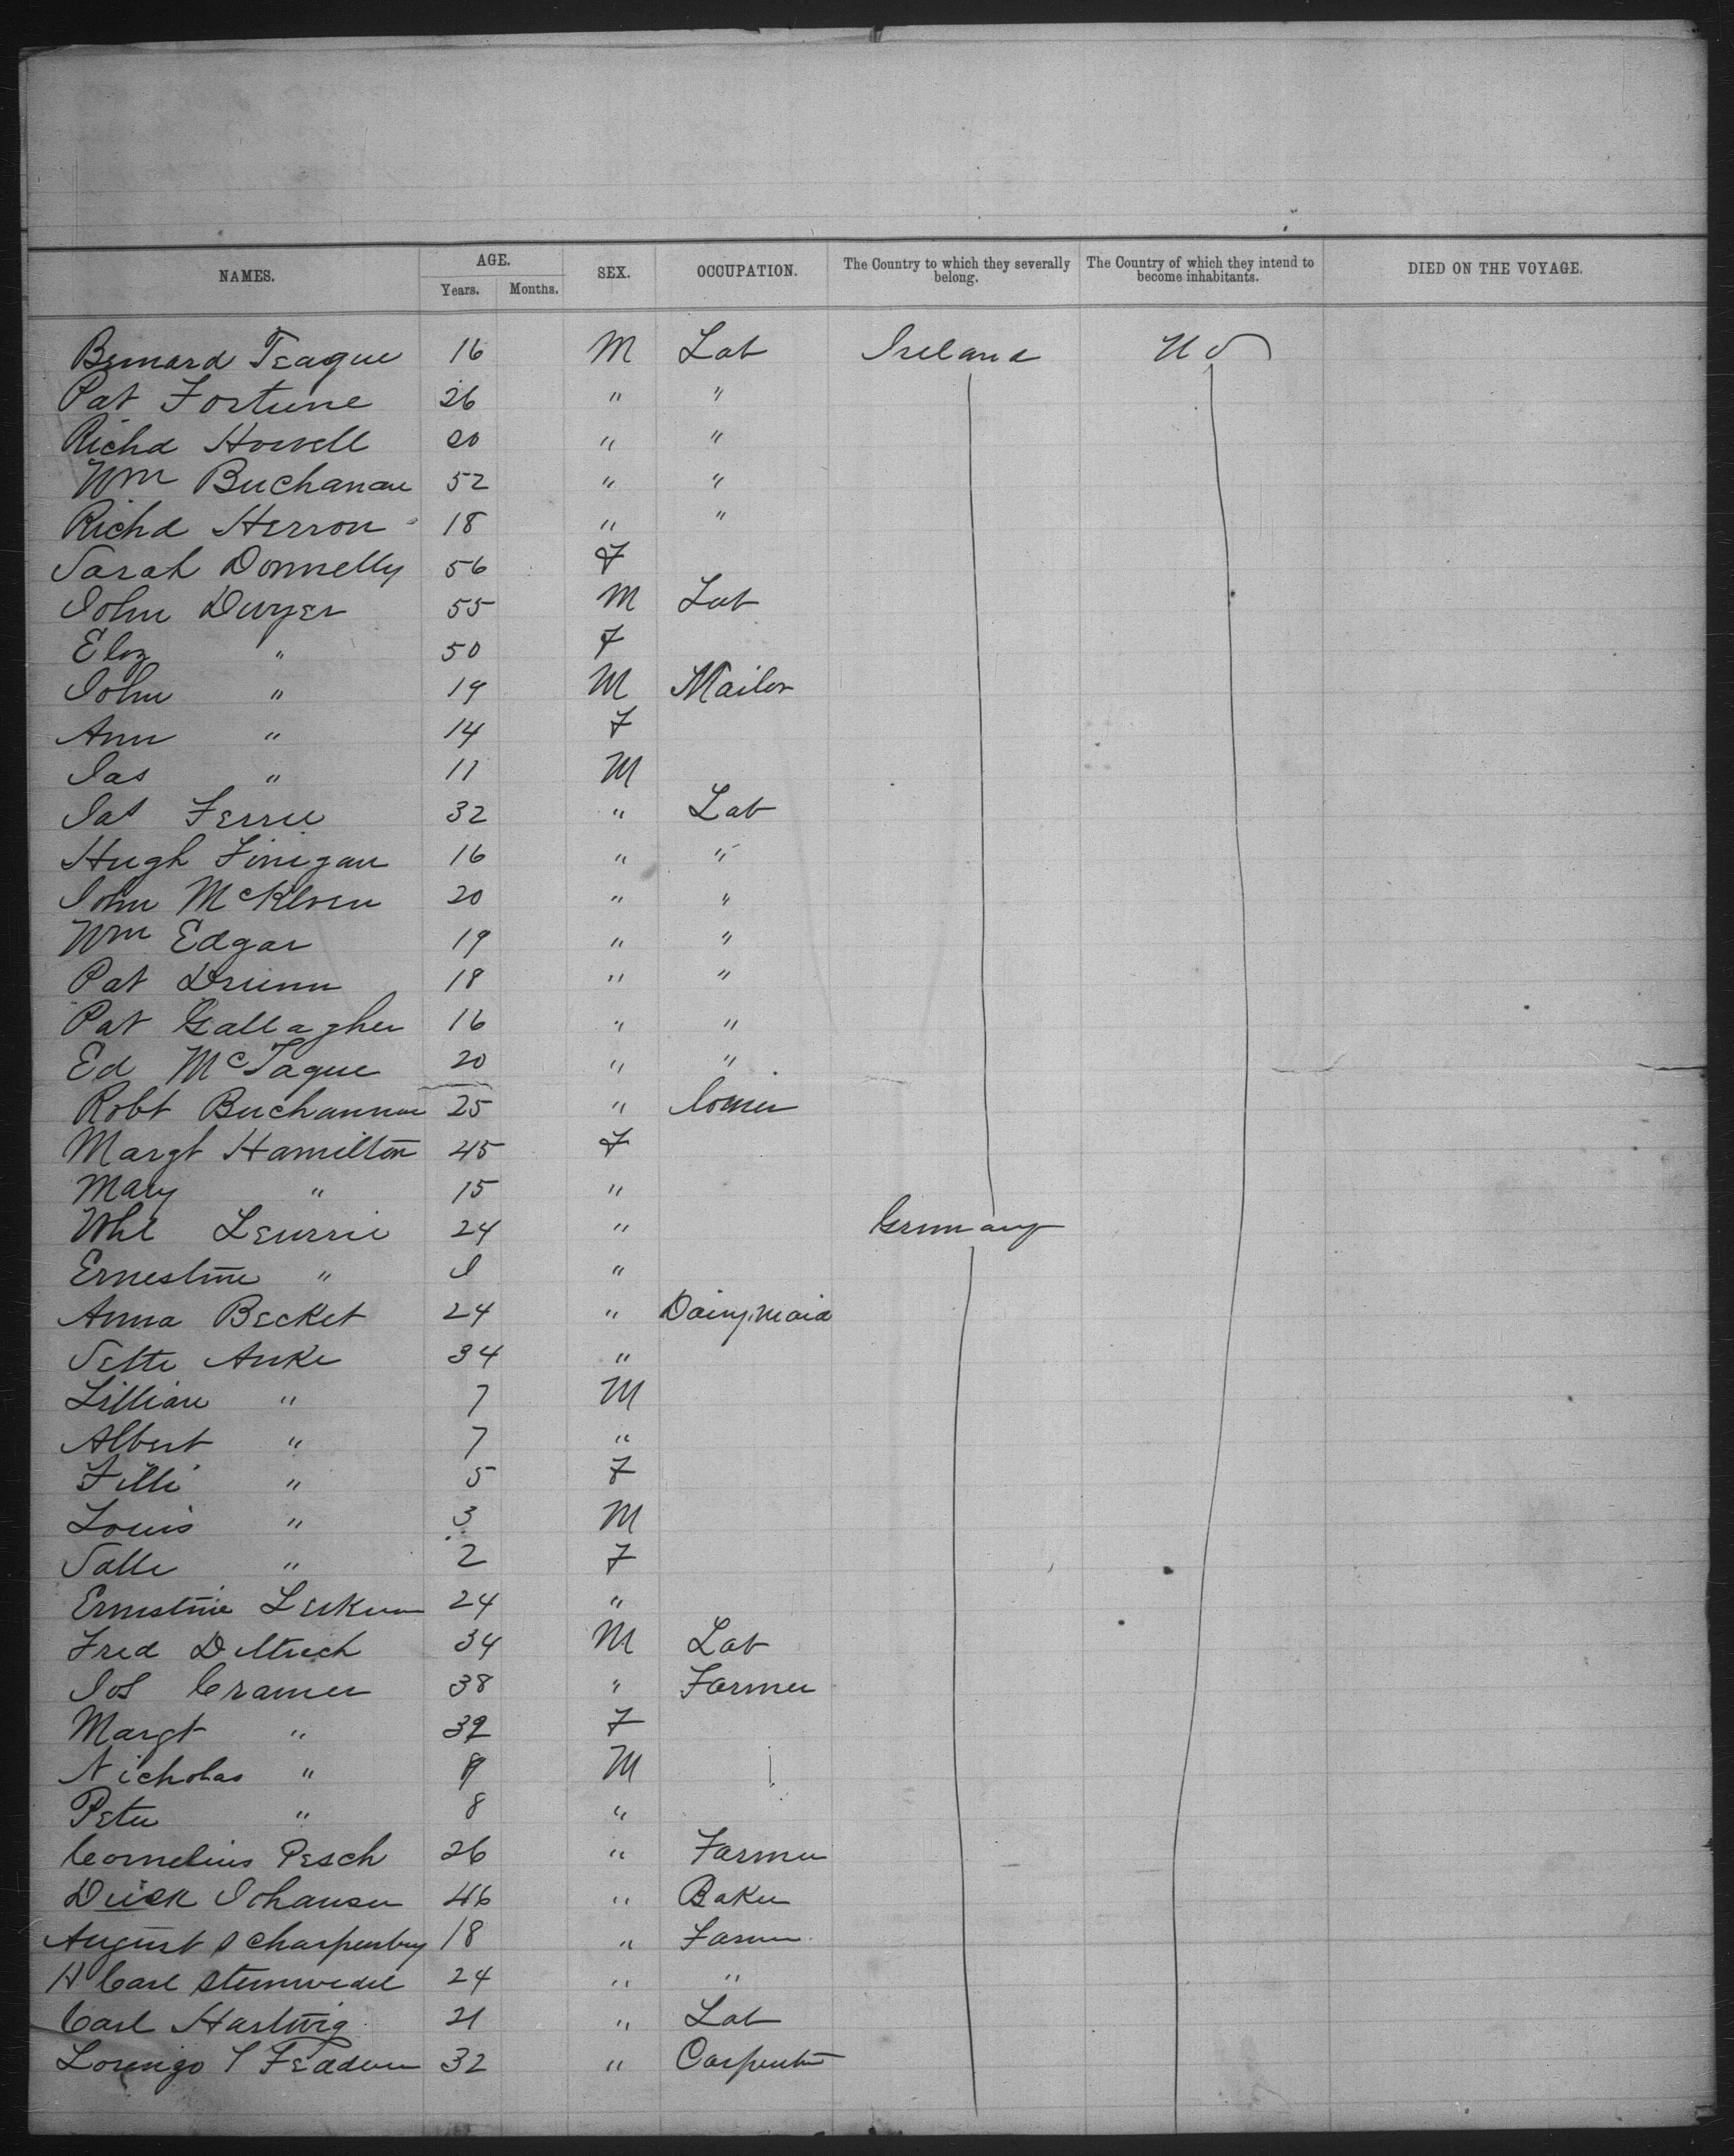 NAMES. AGE. SEX. OCCUPATION. The Country to which they severally belong. The Country of which they intend to become inhabitants. DIED ON THE VOYAGE.
Years. Months.
Bernard Teague 16 M Lab Ireland U S
Pat Fortune 26 " "
Richd Howell 20 " "
Wm Buchanan 52 " "
Richd Herron 18 " "
Sarah Donnelly 56 F
John Dwyer 55 M Lab
Eliz " 50 F
John " 19 M
Ann " 14 F
Jas " 11 M
Jas Ferrie 32 " Lab
Hugh Finigan 16 " "
John 20 " "
Wm Edgar 19 " "
Pat 18 " "
Pat Gallagher 16 " "
Ed McTague 20 " "
Robt Buchannan 25 "
Margt Hamilton 45 F
Mary " 15 "
24 " Germany
Ernestine " "
Anna Becket 24 " Dairymaid
Anke 34 "
Lillian " 7 M
Albert " 7 "
Filli " 5 F
Louis " 3 M
" 2 F
Ernestine 24 "
Fred Dittrich 34 M Lab
Jos Cramer 38 " Farmer
Margt " 32 F
Nicholas " 9 M
Peter " 8 "
Cornelius Pesch 26 " Farmer
Johansen 46 " Baker
August Scharpenberg 18 " Farmer
H Carl Steinwedel 24 " "
Carl Hartwig 21 " Lab
Lorenzo 32 " Carpenter